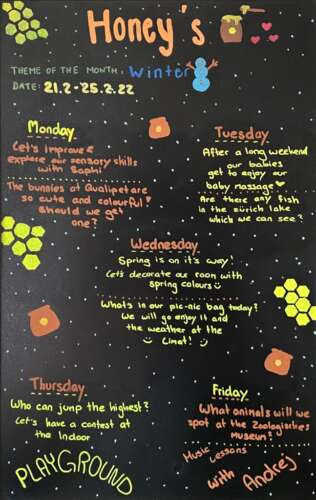 Honey's
THEME OF THE MONTH: Winter
DATE: 21.2-25.2.22
Monday
Let's improve &
explore our sensory skills
with Sophi
The bunnies at Qualipet are
so cute and colourful!
Should we get
one?
Tuesday
After a long weekend
our babies
get to enjoy our
baby massage
Are there any fish
in the zürich lake
which we can see?
Wednesday
Spring is on it's way!
Let's decorate our room with
spring colours
What's in our pic-nic bag today?
We will go enjoy it and
the weather at the
Limat!
Thursday
Who can jump the highest?
Let's have a contest at
the Indoor
PLAYGROUND
Friday
What animals will we
spot at the Zoologisches
Museum?
Music Lessons
with Andrej